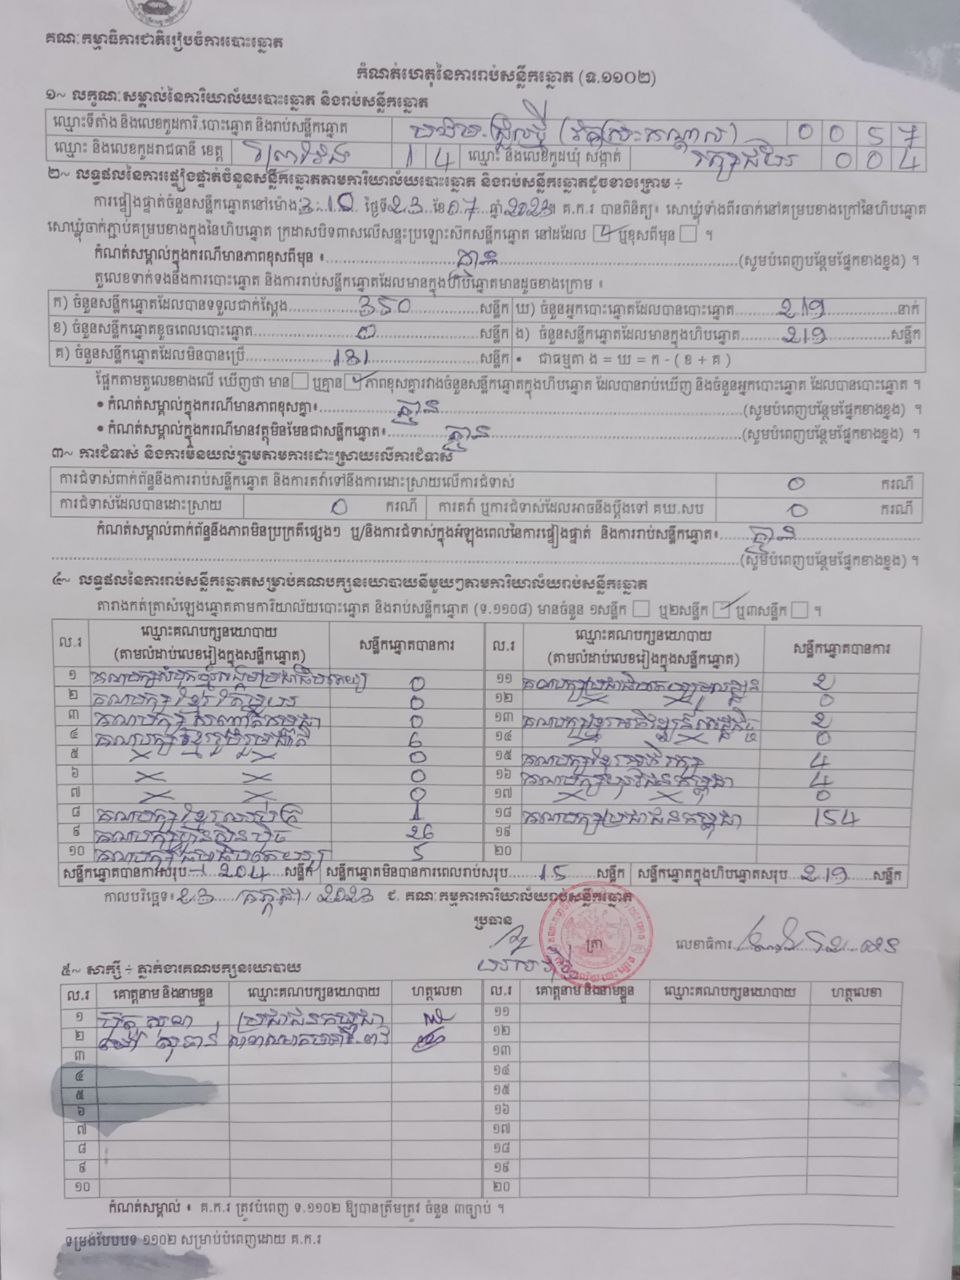 គណៈកម្មាធិការជាតិរៀបចំការបោះឆ្នោត
កំណត់ហេតុនៃការរាប់សន្លឹកឆ្នោត (ទ.១១០២)
១~ លក្ខណៈសម្គាល់នៃការិយាល័យបោះឆ្នោត និងរាប់សន្លឹកឆ្នោត
ឈ្មោះទីតាំង និងលេខកូដការិ.បោះឆ្នោត និងរាប់សន្លឹកឆ្នោត 0 0 5 7
ឈ្មោះ និងលេខកូដរាជធានី ខេត្ត ព្រៃវែង 1 4 ឈ្មោះ និងលេខកូដឃុំ សង្កាត់ 0 0 4
២~ លទ្ធផលនៃការផ្ទៀងផ្ទាត់ចំនួនសន្លឹកឆ្នោតតាមការិយាល័យបោះឆ្នោត និងរាប់សន្លឹកឆ្នោតដូចខាងក្រោម ÷
ការផ្ទៀងផ្ទាត់ចំនួនសន្លឹកឆ្នោតនៅម៉ោង 3:10 ថ្ងៃទី 23 ខែ 07 ឆ្នាំ 2023 គ.ក.រ បានពិនិត្យ៖ សោឃ្លុំទាំងពីរចាក់នៅគម្របខាងក្រៅនៃហិបឆ្នោត
សោឃ្លុំចាក់ភ្ជាប់គម្របខាងក្នុងនៃហិបឆ្នោត ក្រដាសបិទពាសលើសន្ទះប្រឡោះស៊កសន្លឹកឆ្នោត នៅដដែល ☑ ឬខុសពីមុន ☐ ។
កំណត់សម្គាល់ក្នុងករណីមានភាពខុសពីមុន ៖ គ្មាន (សូមបំពេញបន្ថែមផ្នែកខាងខ្នង) ។
តួលេខទាក់ទងនឹងការបោះឆ្នោត និងការរាប់សន្លឹកឆ្នោតដែលមានក្នុងហិបឆ្នោតមានដូចខាងក្រោម ៖
ក) ចំនួនសន្លឹកឆ្នោតដែលបានទទួលជាក់ស្តែង 350 សន្លឹក ឃ) ចំនួនអ្នកបោះឆ្នោតដែលបានបោះឆ្នោត 219 នាក់
ខ) ចំនួនសន្លឹកឆ្នោតខូចពេលបោះឆ្នោត 0 សន្លឹក ង) ចំនួនសន្លឹកឆ្នោតដែលមានក្នុងហិបឆ្នោត 219 សន្លឹក
គ) ចំនួនសន្លឹកឆ្នោតដែលមិនបានប្រើ 131 សន្លឹក • ជាធម្មតា ង = ឃ = ក - ( ខ + គ )
ផ្អែកតាមតួលេខខាងលើ ឃើញថា មាន ☐ ឬគ្មាន ☑ ភាពខុសគ្នារវាងចំនួនសន្លឹកឆ្នោតក្នុងហិបឆ្នោត ដែលបានរាប់ឃើញ និងចំនួនអ្នកបោះឆ្នោត ដែលបានបោះឆ្នោត ។
• កំណត់សម្គាល់ក្នុងករណីមានភាពខុសគ្នា៖ គ្មាន (សូមបំពេញបន្ថែមផ្នែកខាងខ្នង) ។
• កំណត់សម្គាល់ក្នុងករណីមានវត្ថុមិនមែនជាសន្លឹកឆ្នោត៖ គ្មាន (សូមបំពេញបន្ថែមផ្នែកខាងខ្នង) ។
៣~ ការជំទាស់ និងការមិនយល់ព្រមតាមការដោះស្រាយលើការជំទាស់
ការជំទាស់ពាក់ព័ន្ធនឹងការរាប់សន្លឹកឆ្នោត និងការតវ៉ាទៅនឹងការដោះស្រាយលើការជំទាស់ 0 ករណី
ការជំទាស់ដែលបានដោះស្រាយ 0 ករណី ការតវ៉ា ឬការជំទាស់ដែលអាចនឹងប្តឹងទៅ គឃ.សប 0 ករណី
កំណត់សម្គាល់ពាក់ព័ន្ធនឹងភាពមិនប្រក្រតីផ្សេងៗ ឬ/និងការជំទាស់ក្នុងអំឡុងពេលនៃការផ្ទៀងផ្ទាត់ និងការរាប់សន្លឹកឆ្នោត៖ គ្មាន
(សូមបំពេញបន្ថែមផ្នែកខាងខ្នង) ។
៤~ លទ្ធផលនៃការរាប់សន្លឹកឆ្នោតសម្រាប់គណបក្សនយោបាយនីមួយៗតាមការិយាល័យរាប់សន្លឹកឆ្នោត
តារាងកត់ត្រាសំឡេងឆ្នោតតាមការិយាល័យបោះឆ្នោត និងរាប់សន្លឹកឆ្នោត (ទ.១១០៨) មានចំនួន ១សន្លឹក ☐ ឬ២សន្លឹក ☑ ឬ៣សន្លឹក ☐ ។
ល.រ ឈ្មោះគណបក្សនយោបាយ (តាមលំដាប់លេខរៀងក្នុងសន្លឹកឆ្នោត) សន្លឹកឆ្នោតបានការ ល.រ ឈ្មោះគណបក្សនយោបាយ (តាមលំដាប់លេខរៀងក្នុងសន្លឹកឆ្នោត) សន្លឹកឆ្នោតបានការ
១ 0 ១១ 2
២ 0 ១២ × × 0
៣ 0 ១៣ 2
៤ គណបក្សខ្មែររួបរួមជាតិ 6 ១៤ × × 0
៥ × × 0 ១៥ គណបក្សខ្មែរអភិរក្ស 4
៦ × × 0 ១៦ គណបក្សយុវជនកម្ពុជា 4
៧ × × 0 ១៧ × × 0
៨ 1 ១៨ គណបក្សប្រជាជនកម្ពុជា 154
៩ គណបក្សហ្វ៊ុនស៊ិនប៉ិច 26 ១៩
១០ 5 ២០
សន្លឹកឆ្នោតបានការសរុប 204 សន្លឹក សន្លឹកឆ្នោតមិនបានការពេលរាប់សរុប 15 សន្លឹក សន្លឹកឆ្នោតក្នុងហិបឆ្នោតសរុប 219 សន្លឹក
កាលបរិច្ឆេទ៖ 23 / កក្កដា / 2023 ជ. គណៈកម្មការការិយាល័យរាប់សន្លឹកឆ្នោត
ប្រធាន
ត្រា លេខាធិការ
៥~ សាក្សី ÷ ភ្នាក់ងារគណបក្សនយោបាយ
ល.រ គោត្តនាម និងនាមខ្លួន ឈ្មោះគណបក្សនយោបាយ ហត្ថលេខា ល.រ គោត្តនាម និងនាមខ្លួន ឈ្មោះគណបក្សនយោបាយ ហត្ថលេខា
១ ប្រជាជនកម្ពុជា ១១
២ ១២
៣ ១៣
៤ ១៤
៥ ១៥
៦ ១៦
៧ ១៧
៨ ១៨
៩ ១៩
១០ ២០
កំណត់សម្គាល់ ៖ គ.ក.រ ត្រូវបំពេញ ទ.១១០២ ឱ្យបានត្រឹមត្រូវ ចំនួន ៣ច្បាប់ ។
ទម្រង់បែបបទ ១១០២ សម្រាប់បំពេញដោយ គ.ក.រ